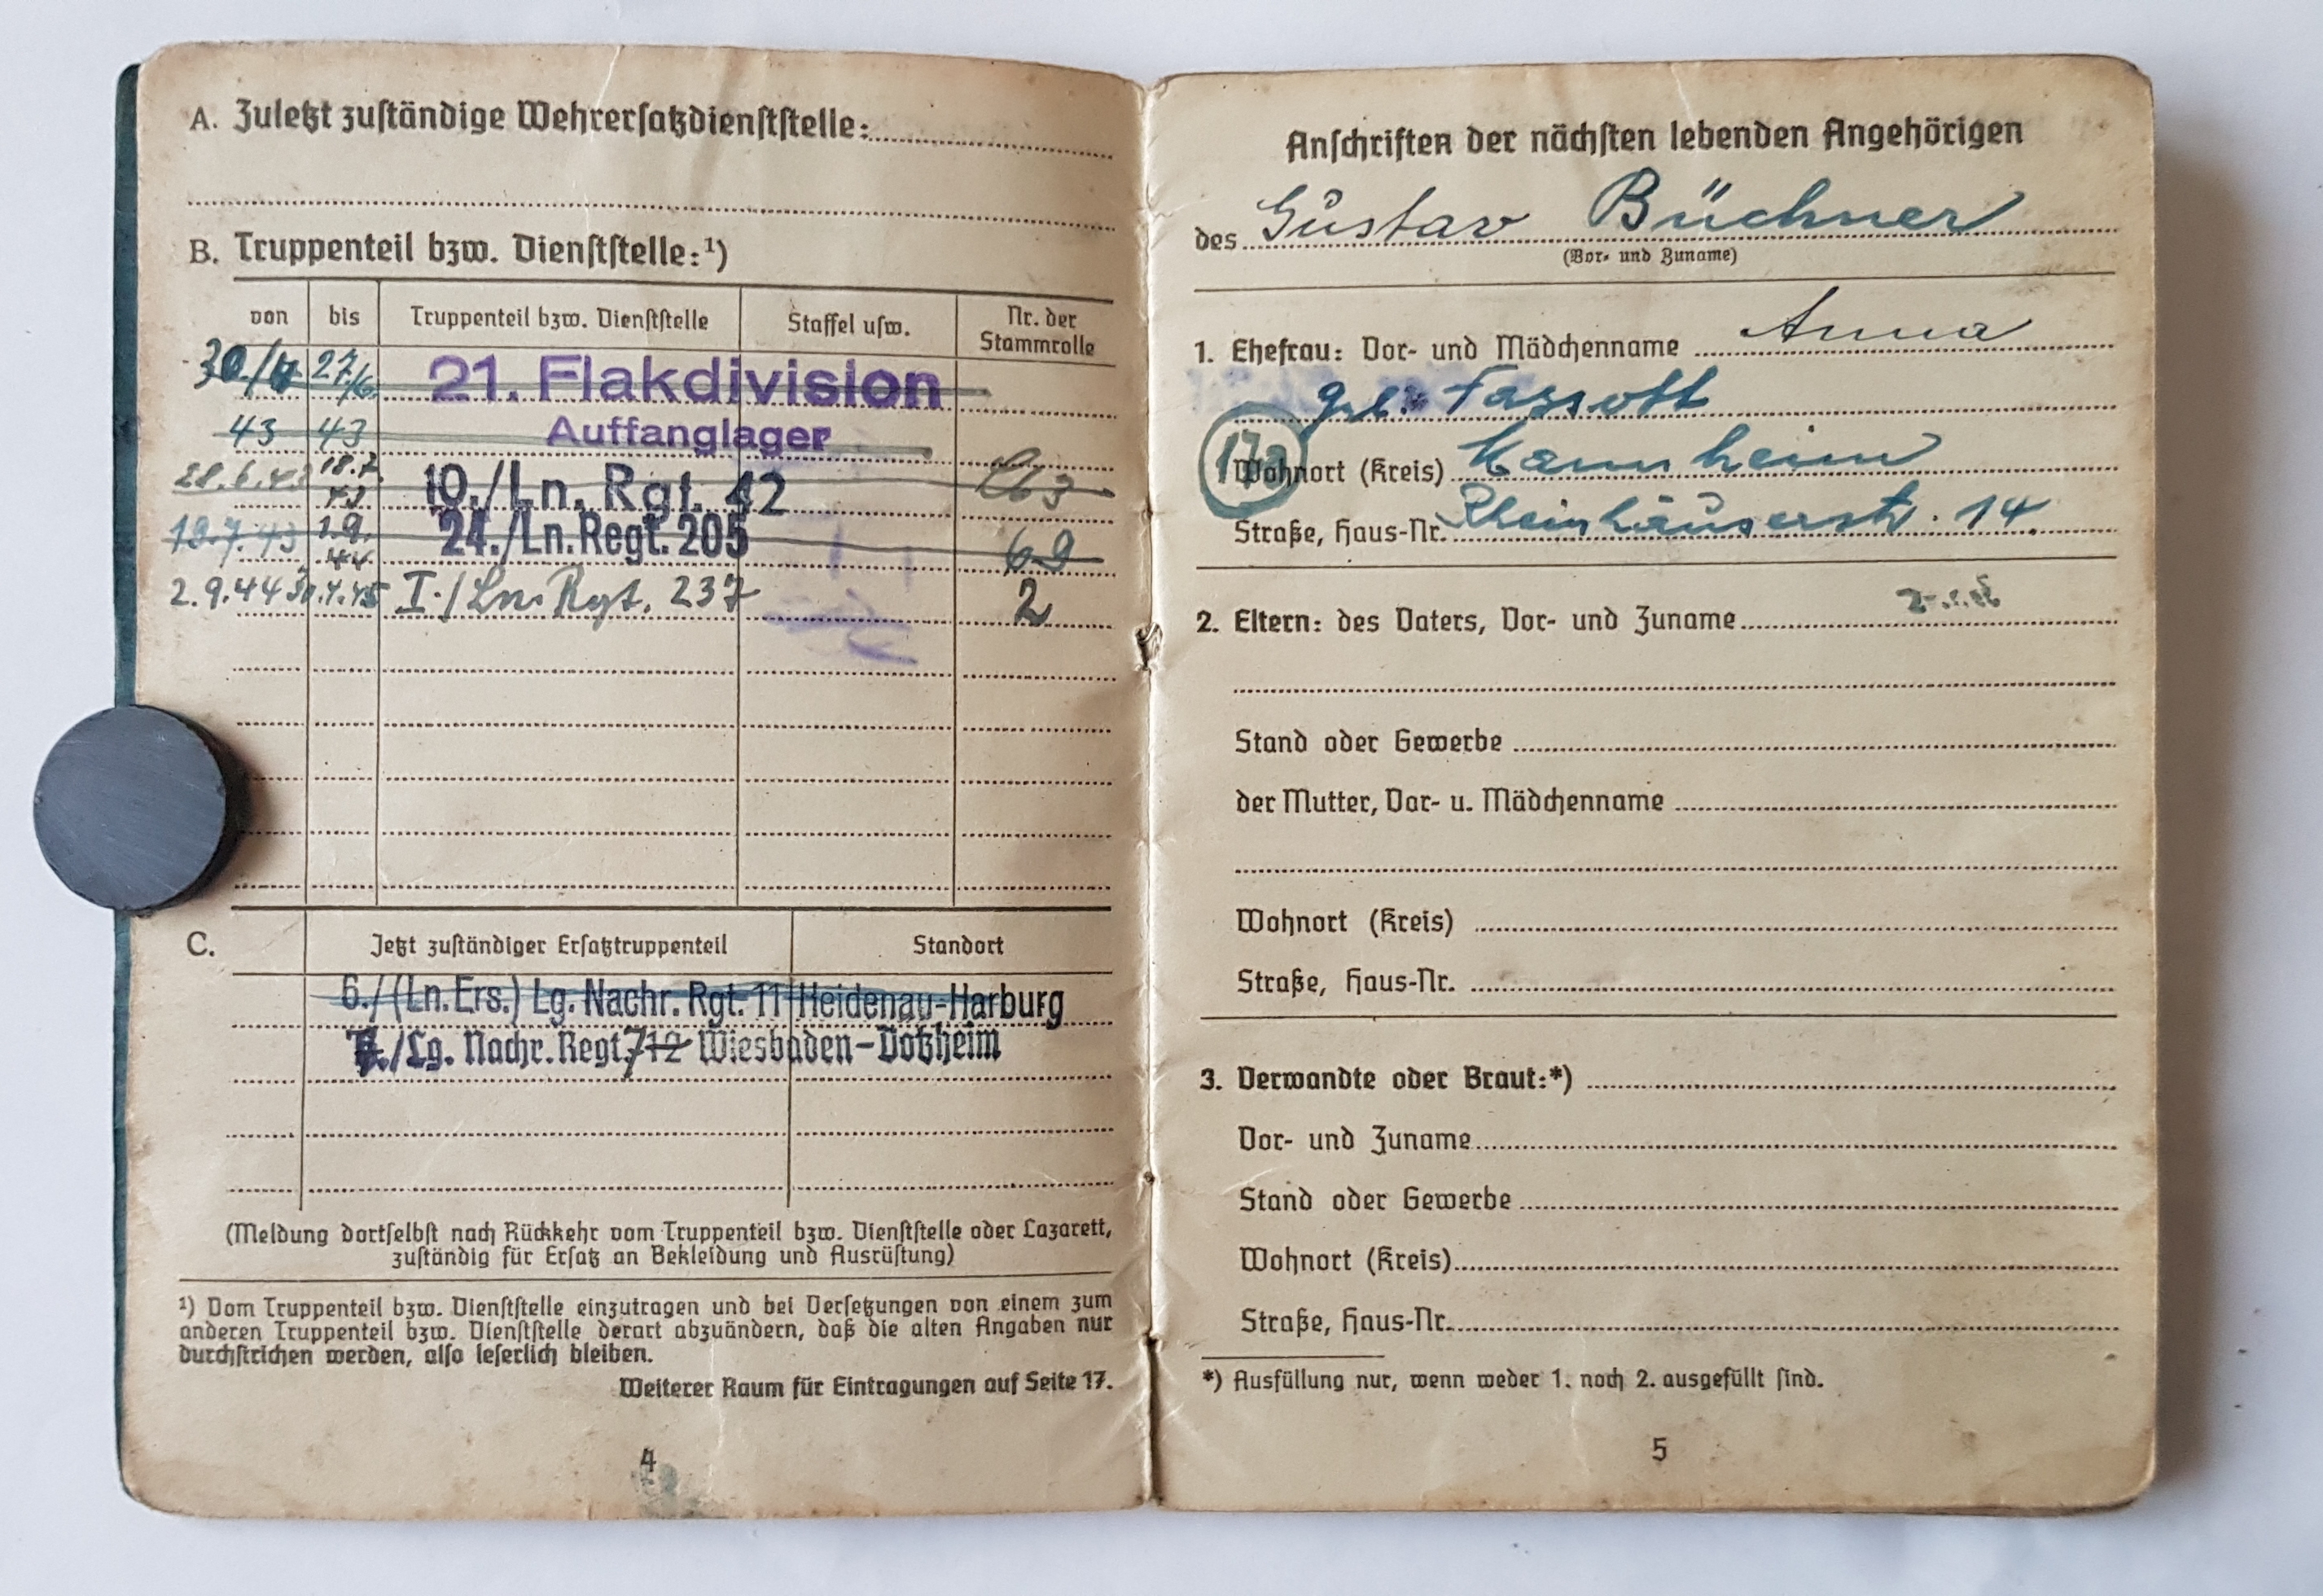 A. Zuletzt zuständige Wehrersatzdienststelle:
B. Truppenteil bzw. Dienststelle:¹)
von bis Truppenteil bzw. Dienststelle Staffel usw. Nr. der Stammrolle
27./6. 21. Flakdivision
43 43 Auffanglager
28.6.43 18.7. 43 10./Ln. Rgt. 42
18.7.43 1.9. 44 24./Ln. Regt. 205 69
2.9.44 I./Ln. Rgt. 237 2
C. Jetzt zuständiger Ersatztruppenteil Standort
6./(Ln.Ers.) Lg. Nachr. Rgt. 11 Heidenau-Harburg
/Lg. Nachr. Regt. 7 12 Wiesbaden-Dotzheim
(Meldung dortselbst nach Rückkehr vom Truppenteil bzw. Dienststelle oder Lazarett,
zuständig für Ersatz an Bekleidung und Ausrüstung)
¹) Vom Truppenteil bzw. Dienststelle einzutragen und bei Versetzungen von einem zum
anderen Truppenteil bzw. Dienststelle derart abzuändern, daß die alten Angaben nur
durchstrichen werden, also leserlich bleiben.
Weiterer Raum für Eintragungen auf Seite 17.
4
Anschriften der nächsten lebenden Angehörigen
des Gustav Büchner
(Vor- und Zuname)
1. Ehefrau: Vor- und Mädchenname Anna
geb. Fassott
17a Wohnort (Kreis) Mannheim
Straße, Haus-Nr. Rheinhäuserstr. 14.
2. Eltern: des Vaters, Vor- und Zuname
Stand oder Gewerbe
der Mutter, Vor- u. Mädchenname
Wohnort (Kreis)
Straße, Haus-Nr.
3. Verwandte oder Braut:*)
Vor- und Zuname
Stand oder Gewerbe
Wohnort (Kreis)
Straße, Haus-Nr.
*) Ausfüllung nur, wenn weder 1. noch 2. ausgefüllt sind.
5